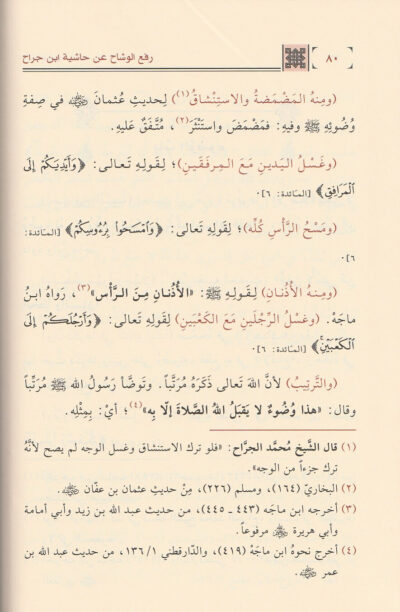 ٨٠ رفع الوشاح عن حاشية ابن جراح
(ومِنهُ المَضمَضةُ والاستِنْشاقُ(١)) لِحديثِ عُثمانَ ﵁ في صِفةِ
وُضُوئِهِ ﷺ وفيهِ: فمَضْمَضَ واستَنْثَرَ(٢)، مُتَّفَقٌ عَلَيهِ.
(وغَسْلُ اليَدينِ مَعَ المِرفَقَينِ)؛ لِقَولِهِ تَعالى: ﴿وَأَيْدِيَكُمْ إِلَى
الْمَرَافِقِ﴾ [المَائدة: ٦].
(ومَسْحُ الرَّأْسِ كُلِّه)؛ لِقَولِهِ تَعالى: ﴿وَامْسَحُوا بِرُءُوسِكُمْ﴾ [المَائدة:
٦].
(ومِنهُ الأُذُنانِ) لِقَولِهِ ﷺ: «الأُذُنانِ مِنَ الرَّأس»(٣)، رَواهُ ابنُ
ماجَهْ. (وغَسلُ الرِّجْلَينِ مَعَ الكَعْبَينِ) لِقَولِهِ تَعالى: ﴿وَأَرْجُلَكُمْ إِلَى
الْكَعْبَيْنِ﴾ [المَائدة: ٦].
(والتَّرتِيبُ) لأنَّ اللهَ تَعالى ذَكَرَهُ مُرَتَّباً. وتَوضَّأ رَسُولُ اللهِ ﷺ مُرَتِّباً
وقال: «هذا وُضُوءٌ لا يَقبَلُ اللهُ الصَّلاةَ إلّا بِهِ»(٤)؛ أيْ: بِمِثْلِهِ.
(١) قال الشَّيخ مُحمَّد الجرَّاح: «فلو ترك الاستنشاق وغسل الوجه لم يصح لأنَّهُ
ترك جزءاً من الوجه».
(٢) البخاريّ (١٦٤)، ومسلم (٢٢٦)، مِنْ حديثِ عثمان بن عفّان ﵁.
(٣) أخرجه ابن ماجَه (٤٤٣ ـ ٤٤٥)، من حديث عبد الله بن زيد وأبي أمامة
وأبي هريرة ﵃ مرفوعاً.
(٤) أخرج نحوهُ ابن ماجَهْ (٤١٩)، والدّارقطني ١/١٣٦، من حديث عبد الله بن
عمر ﵄.